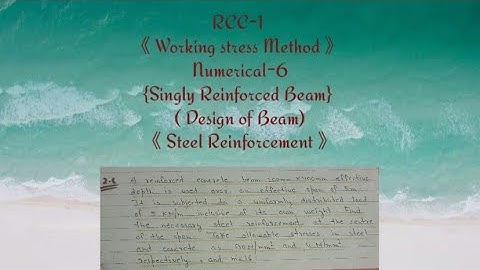 RCC-1
《 Working stress Method 》
Numerical-6
{Singly Reinforced Beam}
( Design of Beam)
《 Steel Reinforcement 》
A reinforced concrete beam effective
depth is used over an effective span of 5m.
It is subjected to a uniformly distributed load
of 5 KN/m inclusive of its own weight. Find
the necessary steel reinforcement at the centre
of the span. Take allowable stresses in steel
and concrete as and
respectively, and m=18